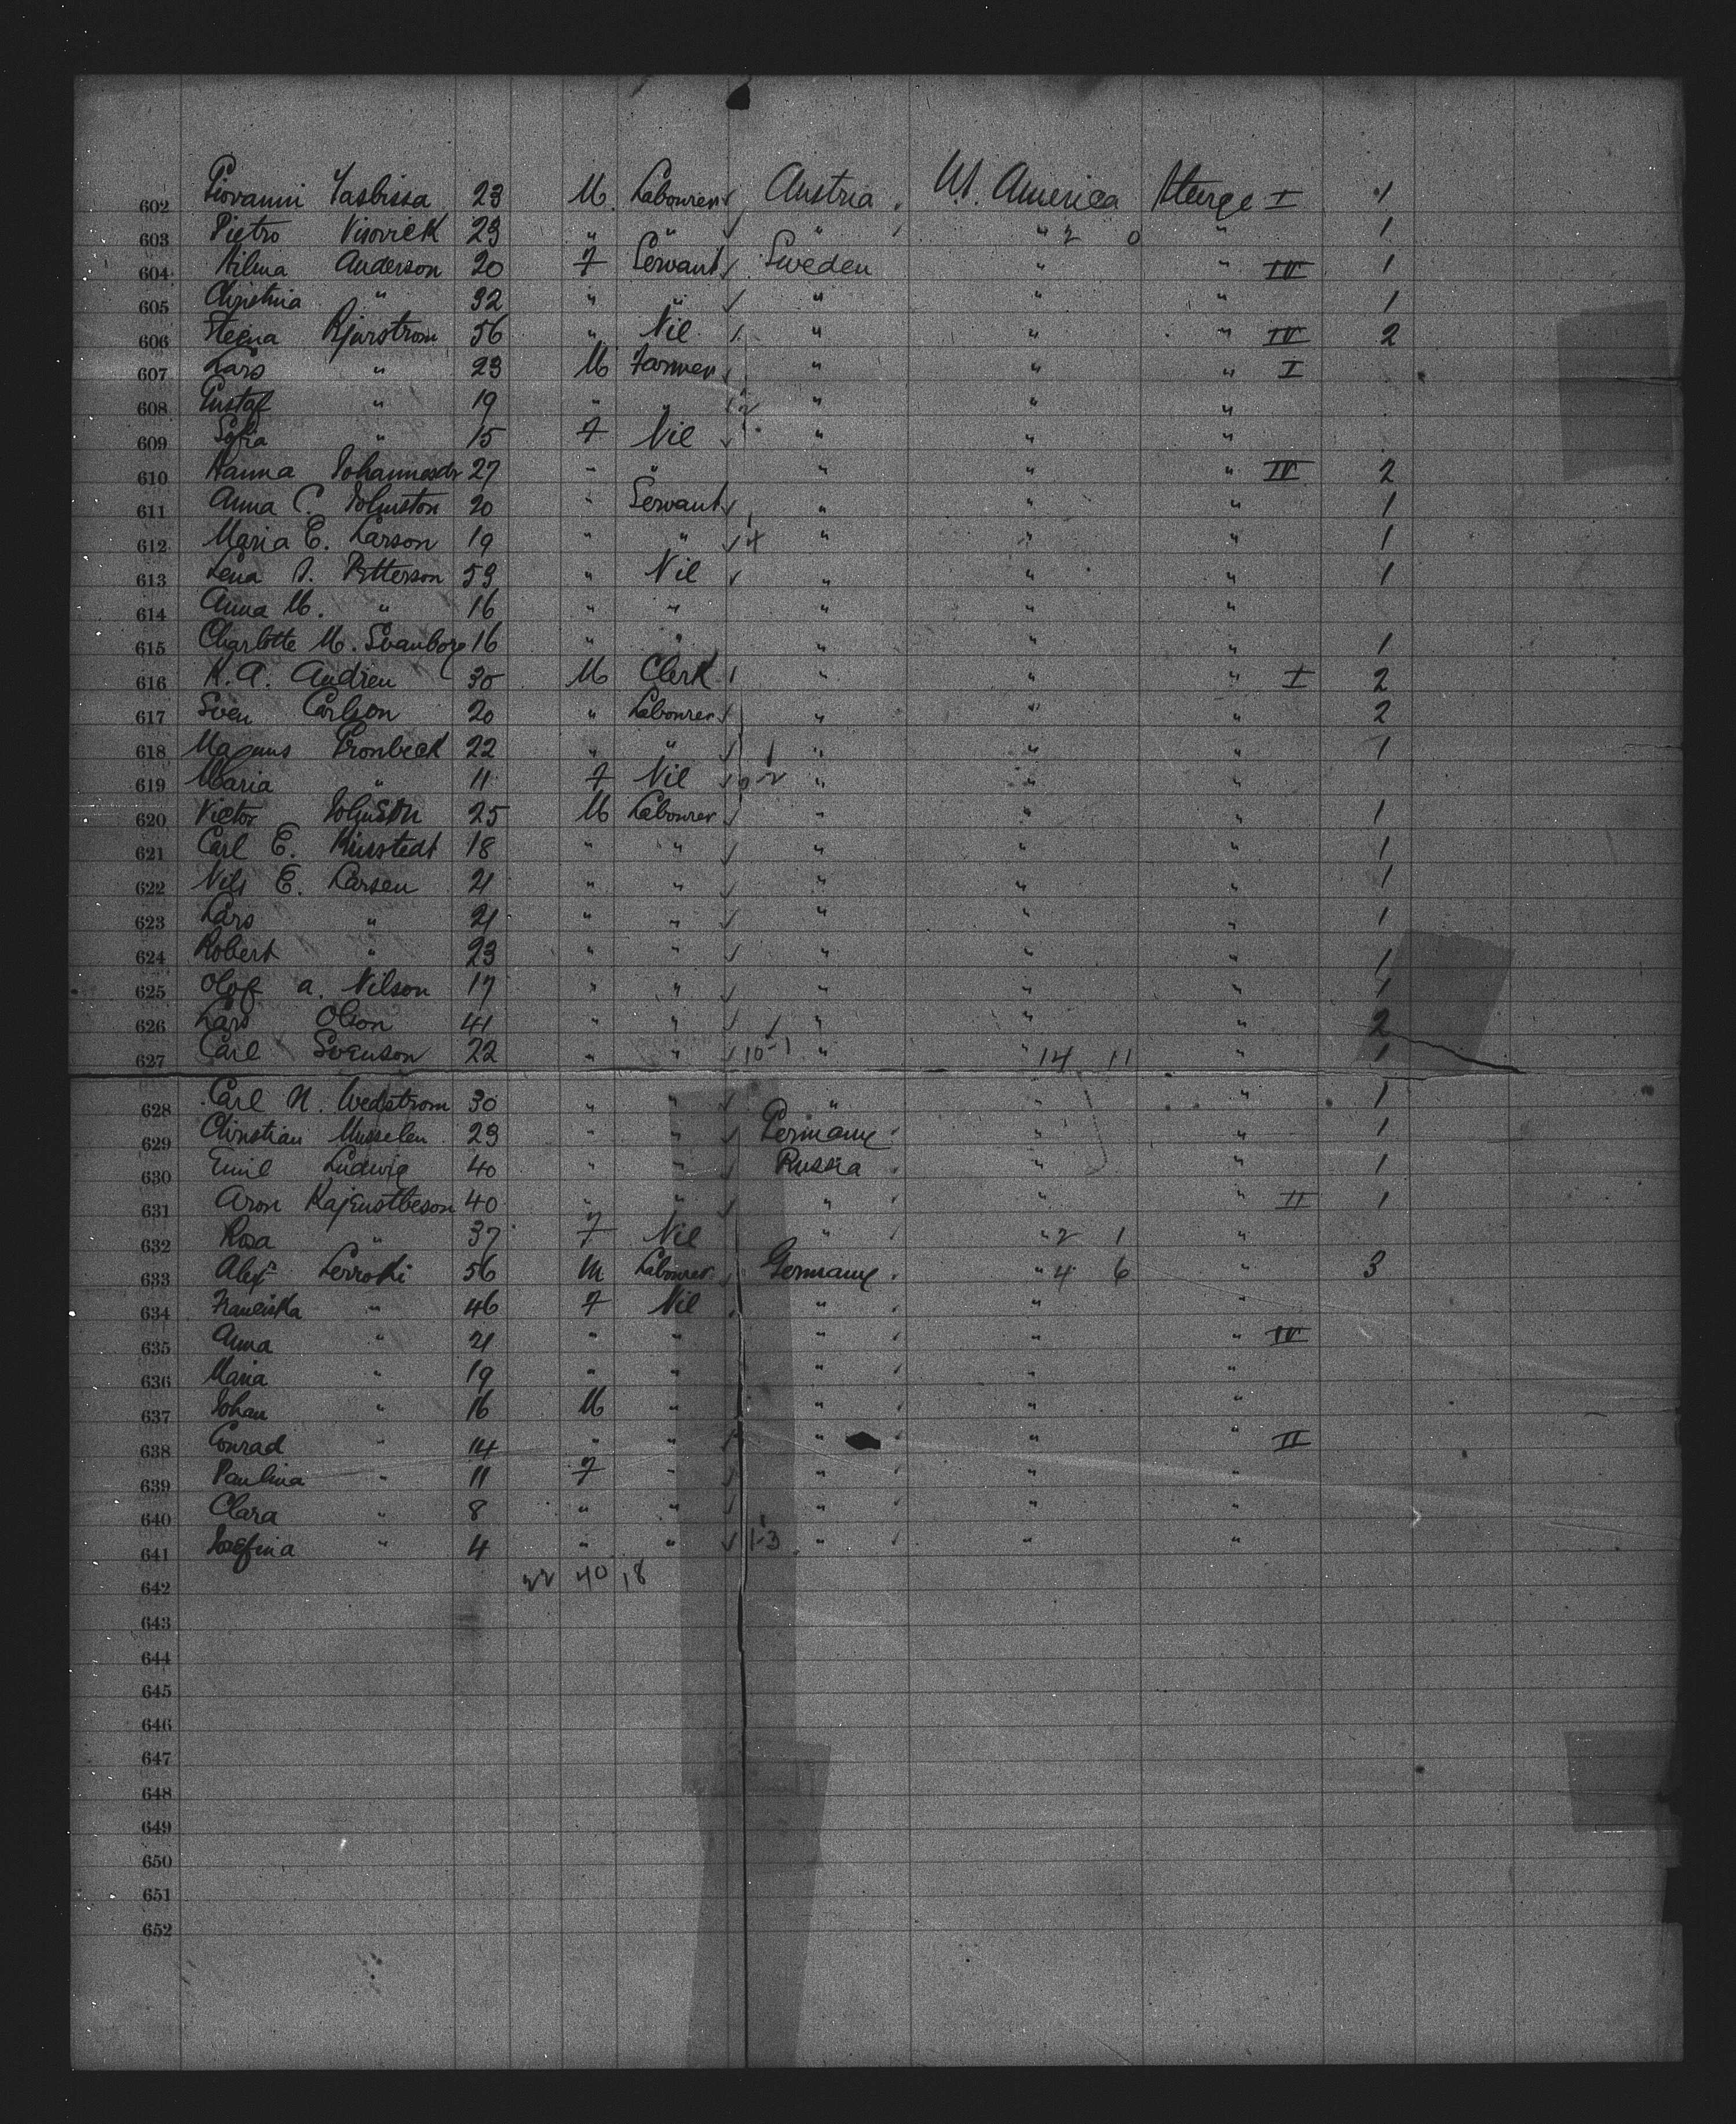 602 Giovanni Tasbissa 23 M. Labourer Austria U.S. America Steerge I 1
603 Pietro Visovick 23 " " " " 2 0 " 1
604 Hilma Anderson 20 F Servant Sweden " " IV 1
605 Christina " 32 " " " " " 1
606 Steena Bjurstrom 56 " Nil " " " IV 2
607 Lars " 23 M Farmer " " " I
608 Gustaf " 19 " " " " "
609 Sofia " 15 F Nil " " "
610 Hanna Johannesdr 27 " " " " " IV 2
611 Anna C. Johnston 20 " Servant " " " 1
612 Maria E. Larson 19 " " 4 " " " 1
613 Lena S. Petterson 53 " Nil " " " 1
614 Anna M. " 16 " " " " "
615 Charlotte M. Svanborg 16 " " " " " 1
616 K. A. Andren 30 M Clerk " " " I 2
617 Sven Carlson 20 " Labourer " " " 2
618 Magnus Cronbeck 22 " " 1 " " " 1
619 Maria " 11 F Nil 9-2 " " "
620 Victor Johnston 25 M Labourer " " " 1
621 Carl E. Kinstedt 18 " " " " " 1
622 Nils E. Larsen 21 " " " " " 1
623 Lars " 21 " " " " " 1
624 Robert " 23 " " " " 1
625 Olof a. Nilson 17 " " " " " 1
626 Lars Olson 41 " " " " " 2
627 Carl Svenson 22 " " 10-1 " " 14 11 " 1
628 Carl N. Wedstrom 30 " " " " " 1
629 Christian Musselen 23 " " Germany " " 1
630 Emil Ludwig 40 " " Russia " " 1
631 Aron Kajenstbeson 40 " " " " " II 1
632 Rosa " 37 F Nil " " 2 1 "
633 Alex Lerroki 56 M Labourer Germany " 4 6 " 3
634 Franciska " 46 F Nil " " "
635 Anna " 21 " " " " " IV
636 Maria " 19 " " " " "
637 Johan " 16 M " " " "
638 Conrad " 14 " " " " " II
639 Paulina " 11 F " " " "
640 Clara " 8 " " " " "
641 Josefina " 4 " " 1-3 " " "
642 22 40 18
643
644
645
646
647
648
649
650
651
652